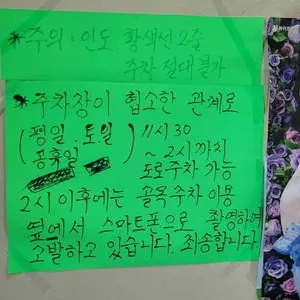 *주의: 인도. 황색선 2줄
주차 절대 불가
*주차장이 협소한 관계로
(평일. 토.일 공휴일) 11시 30
~2시까지
도로주차 가능
2시 이후에는 골목주차 이용
옆에서 스마트폰으로 촬영하여
고발하고 있습니다. 죄송합니다.